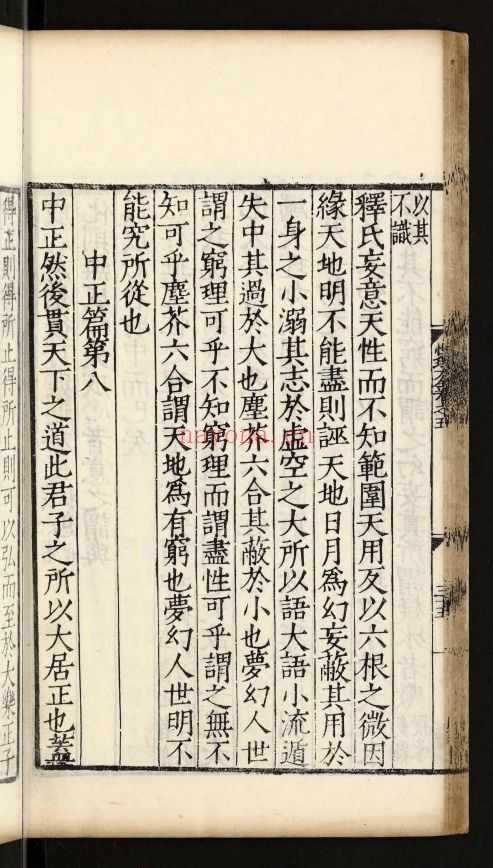 以其
不識
釋氏妄意天性而不知範圍天用反以六根之微因
緣天地明不能盡則誣天地日月爲幻妄蔽其用於
一身之小溺其志於虛空之大所以語大語小流遁
失中其過於大也塵芥六合其蔽於小也夢幻人世
謂之窮理可乎不知窮理而謂盡性可乎謂之無不
知可乎塵芥六合謂天地爲有窮也夢幻人世明不
能究所從也
中正篇第八
中正然後貫天下之道此君子之所以大居正也蓋
得正則得所止得所止則可以弘而至於大樂正子
nayona.cn